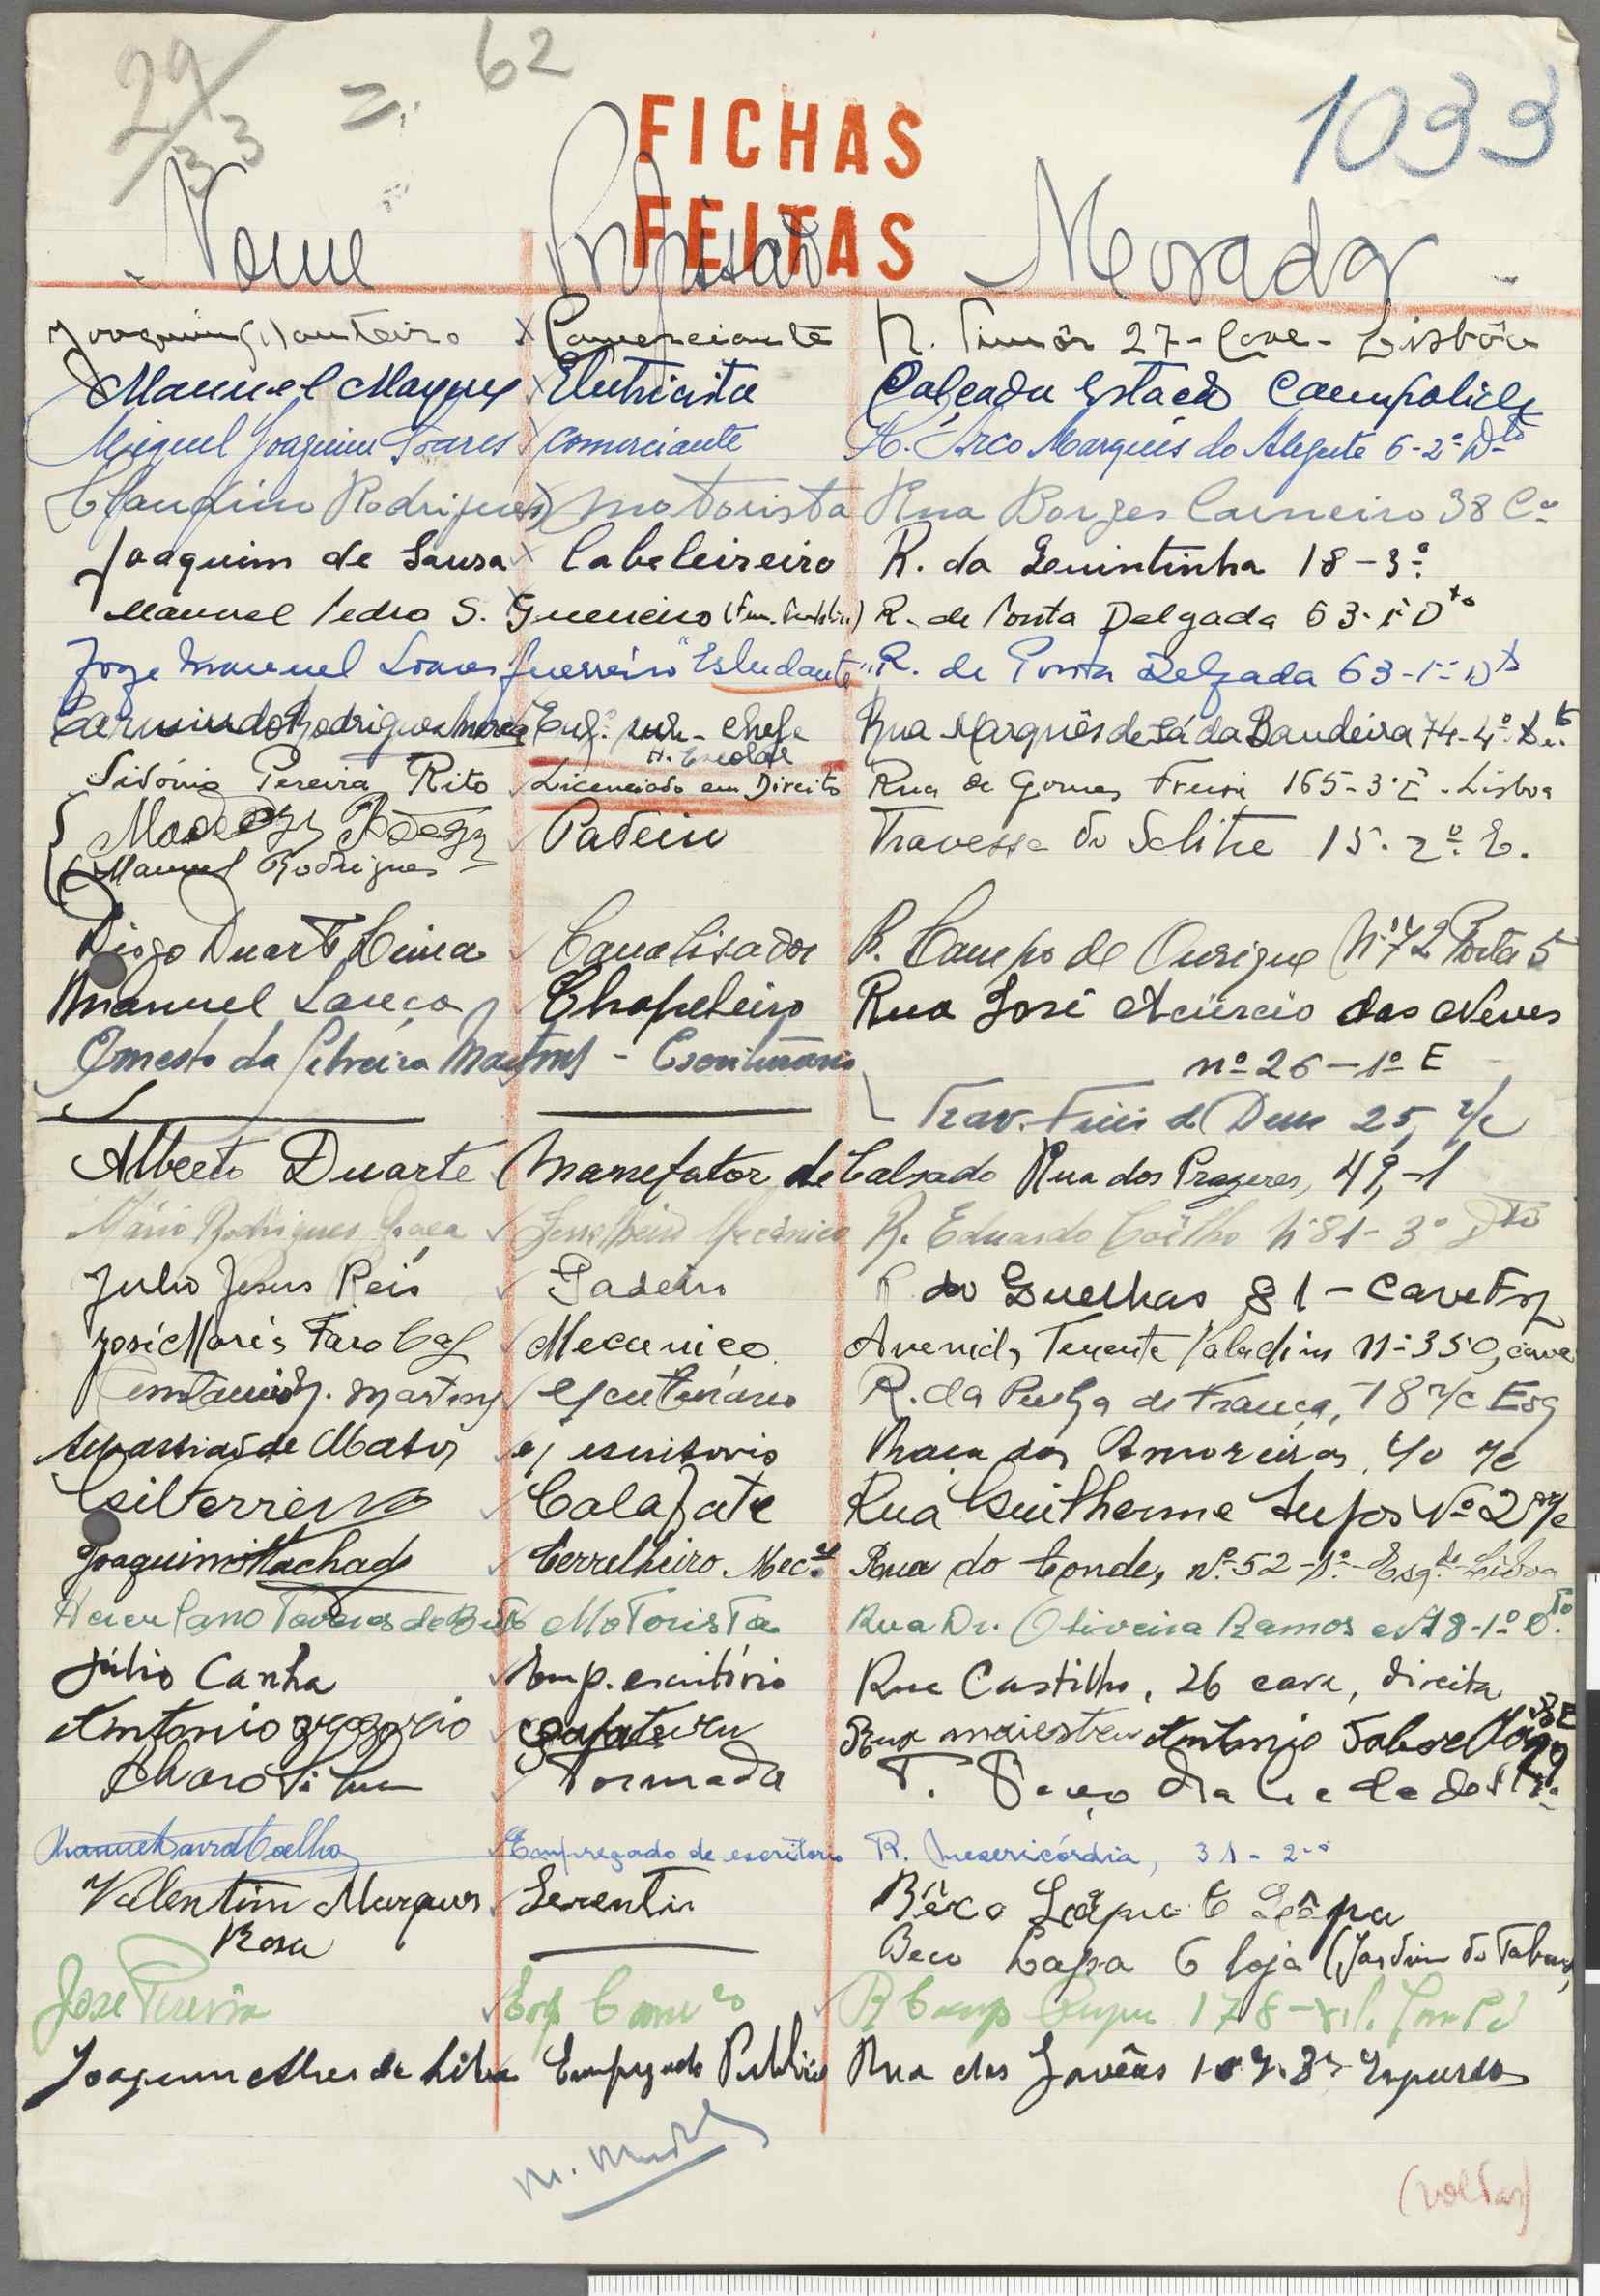 29/33 = 62
1033
FICHAS
FEITAS
Nome Profissão Morada
Joaquim Monteiro x Comerciante R. Timôr 27-Cave- Lisbôa
Manuel Marques x Eletricista Calçada Estação Campolide
Miguel Joaquim Soares x Comerciante R. Arco Marquês do Alegrete 6-2º Dto
Claudino Rodrigues x motorista Rua Borges Carneiro 38 Cv
Joaquim de Sousa x Cabeleireiro R. da 18-3º
Manuel Pedro S. Guerreiro (Fun. Publico) R. de Ponta Delgada 63-1º Dto
Jorge Manuel Soares Guerreiro "Estudante" R. de Ponta Delgada 63-1º Dto
Carmindo Rodrigues Enfº sub-chefe Rua Marquês de Sá da Bandeira 74-4º Dto
H. Escolar
Sidónio Pereira Rito Licenciado em Direito Rua de Gomes Freire 165-3º E. Lisboa
Padeiro Travessa do Salitre 15. 2º. E.
(Manuel Rodrigues
Diogo Duarte Lima Canalisador R. Campo de Ourique Nº 72 Porta 5
Manuel Lareça Chapeleiro Rua José Acúrcio das Neves
nº 26-1º E
Ernesto da Silveira Martins - Escriturario
Trav. Fieis d Deus 25, r/c
Alberto Duarte Manefator de Calsado Rua dos Prazeres, 49,-1
Mário Rodrigues Graça Serralheiro Mecânico R. Eduardo Coêlho Nº 81-3º Dto
Julio Jesus Reis Padeiro R. do Guelhas 81-Cave Esq
José Maria Faro Mecanico Avenida Tenente Valadim nº 350, cave
Constancio J. Martins escriturário R. da Penha de França, 18 r/c Esq
Sebastião de Matos e/ escritorio Praça das Amoreiras, 40 r/c
Gil Ferreira Calafate Rua Guilherme Nº 2 r/c
Joaquim Machado Serralheiro Mecº Rua do Conde, nº 52-1º-Esqdo Lisboa
Herculano Tavares de Brito Motorista Rua Dr. Oliveira Ramos nº 18-1º Dto.
Júlio Canha Emp. escritório Rua Castilho, 26 cave, direita
Antonio gregorio sapateiro Rua maiestro Antonio 29
T.
Manuel Coelho Empregado de escritorio R. Misericórdia, 31-2º
Valentim Marques Serente Bêco Lápa 6 Lápa
Rosa Beco Lapa 6 loja (Jardim do Tabaco)
José Pereira Emp Comcio R Camp 178-
Joaquim Alves da Silva Empregado Publico Rua das Gaveas 109.3º Esquerdo
(voltar)